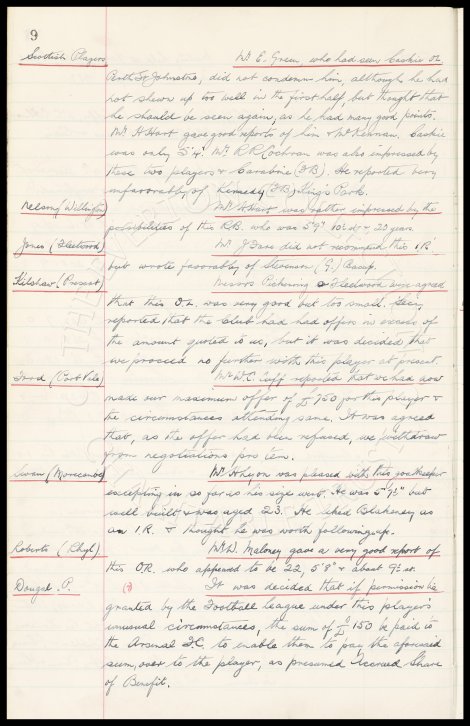 9
Scottish Players Mr E. Green, who had seen Caskie or
Perth St Johnstone, did not condemn him, although he had
not shewn up too well in the first half, but thought that
he should be seen again, as he had many good points.
Mr A. Hart gave good reports of him & McKennan. Caskie
was only 5'4". Mr R.R. Cochran was also impressed by
these two players & Carabine (F.B). He reported very
unfavorably of Kennedy (F.B), King's Park.
Nelson (Wellington) Mr A Hart was rather impressed by the
possibilities of this R.B. who was 5'9" 10st & 20 years.
Jones (Fleetwood) Mr J. Fare did not recommend this I R
but wrote favorably of Stevenson (G.) Bacup.
Kilshaw (Prescot) Messrs Pickering & Fleetwood were agreed
that this O.L. was very good but too small. Secy.
reported that the Club had had offers in excess of
the amount quoted to us, but it was decided that
we proceed no further with this player at present.
Ward (Port Vale) Mr W.C. Cuff reported that we had now
made our maximum offer of £750 for this player &
the circumstances attending same. It was agreed
that, as the offer had been refused, we withdraw
from negotiations pro tem.
(Morecambe) Mr A Lyon was pleased with this goalkeeper
excepting in so far as his size went. He was 5'9½" but
well built & was aged 23. He liked Blakeney as
an I R. & thought he was worth following up.
Roberts (Rhyl) Mr W. Maloney gave a very good report of
this O.R. who appeared to be 22, 5'8" & about 9½ st.
Dougal. P. It was decided that if permission be
granted by the Football League under this player's
unusual circumstances, the sum of £150 be paid to
the Arsenal F.C. to enable them to pay the aforesaid
sum, over to the player, as presumed Accrued Share
of Benefit.